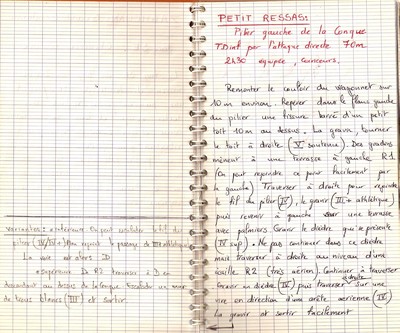 PETIT RESSAS:
Pilier gauche de la Conque
TDinf par l'attaque directe 70m
2h30 équipée, coinceurs.
Remonter le couloir du wagonnet sur
10 m environ. Repérer dans le flanc gauche
du pilier une fissure barré d'un petit
toit 10m au dessus. La gravir, tourner
le toit à droite (V soutenu). Des gradins
mènent à une terrasse à gauche R1
(On peut rejoindre ce point facilement par
la gauche) Traverser à droite pour rejoindre
le fil du pilier (IV), le gravir (III+ athlétique)
puis revenir à gauche sur une terrasse
avec palmiers. Gravir le dièdre qui se présente
(IV sup) • Ne pas continuer dans ce dièdre
mais traverser à droite au niveau d'une
R2 (très aérien). Continuer à traverser
à droite
Gravir un dièdre (IV) puis traverser sur une
vire en direction d'une arête aérienne (IV)
La gravir et sortir facilement
Variantes: • inférieure: On peut
pilier (IV/IV+) Puis rejoint le passage de III athlétique
La voie est alors D
• supérieure D R2 traverser à D en
au dessus de la Conque. Escalader un mur
de blancs (III) et sortir.